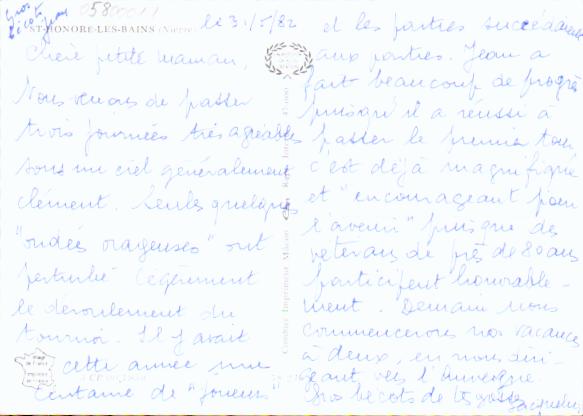 Gros
bécots
05800011
ST-HONORE-LES-BAINS (Nièvre)
le 31/5/82
Chère petite maman,
Nous venons de passer
trois journées très agréables
sous un ciel généralement
clément. Seules quelques
"ondées orageuses" ont
perturbé légèrement
le déroulement du
tournoi. Il y avait
cette année une
centaine de "joueurs"
et les parties succédaient
aux parties. Jean a
fait beaucoup de progrès
puisqu'il a réussi à
passer le premier tour
c'est déjà magnifique
et "encourageant pour
l'avenir" puisque des
vétérans de près de 80 ans
participent honorable-
ment. Demain nous
commencerons nos vacances
à deux, en nous diri-
geant vers l'Auvergne
Gros bécots de
Combier Imprimeur Mâcon